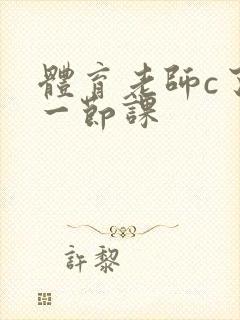 體育老師c了
一節課
許黎